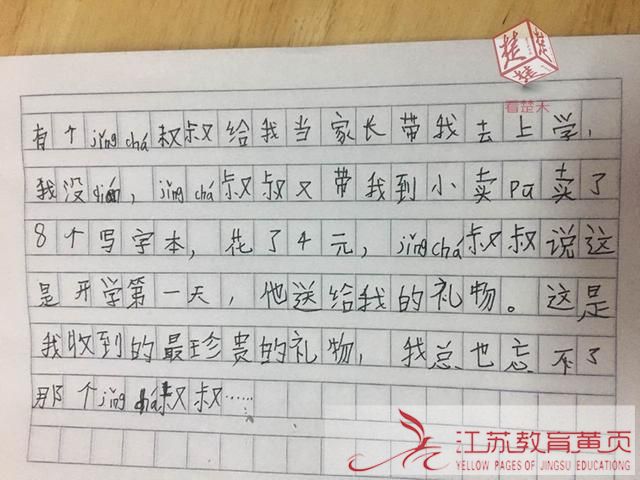 楚楚楚
看楚木
有个jǐng chá叔叔给我当家长带我去上学，
我没qián，jǐng chá叔叔又带我到小卖pù卖了
8个写字本，花了4元，jǐng chá叔叔说这
是开学第一天，他送给我的礼物。这是
我收到的最珍贵的礼物，我总也忘不了
那个jǐng chá叔叔……
江苏教育黄页
YELLOW PAGES OF JINGSU EDUCATIONG